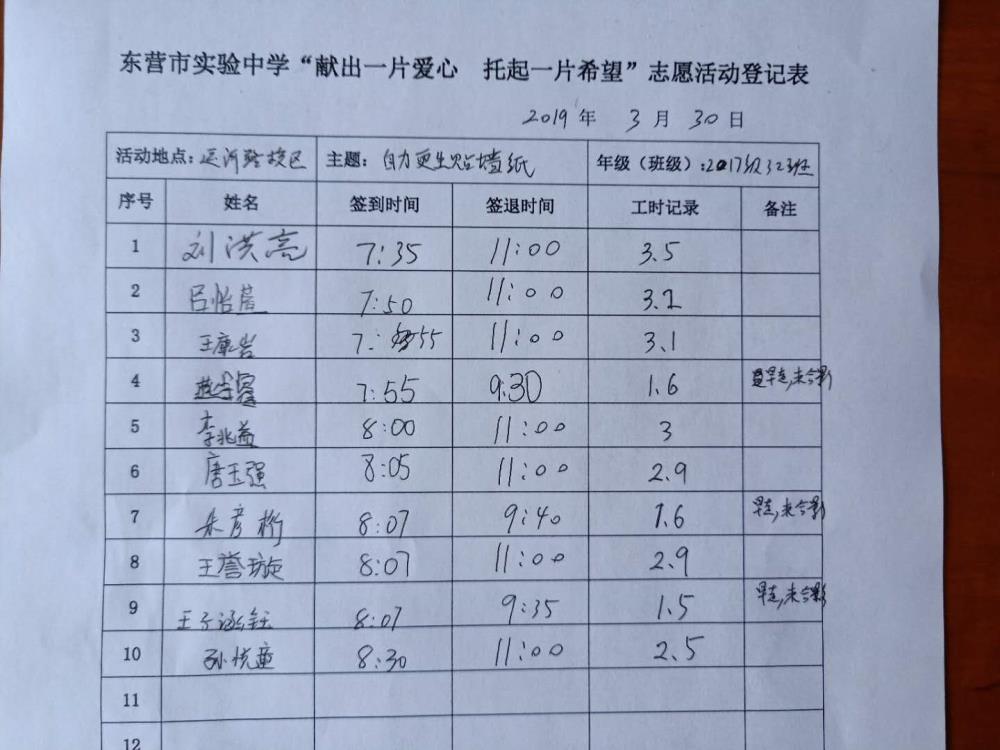 东营市实验中学“献出一片爱心 托起一片希望”志愿活动登记表
2019 年 3 月 30 日
活动地点：延河路校区 主题：自力更生贴墙纸 年级（班级）：2017级323班
序号 姓名 签到时间 签退时间 工时记录 备注
1 刘洪亮 7:35 11:00 3.5
2 吕怡 7:50 11:00 3.2
3 王康岩 7:55 11:00 3.1
4 7:55 9:30 1.6 早走,未合影
5 李兆益 8:00 11:00 3
6 唐玉强 8:05 11:00 2.9
7 朱彦桁 8:07 9:40 1.6 早走,未合影
8 王誉璇 8:07 11:00 2.9
9 王子涵钰 8:07 9:35 1.5 早走,未合影
10 孙悦童 8:30 11:00 2.5
11
12